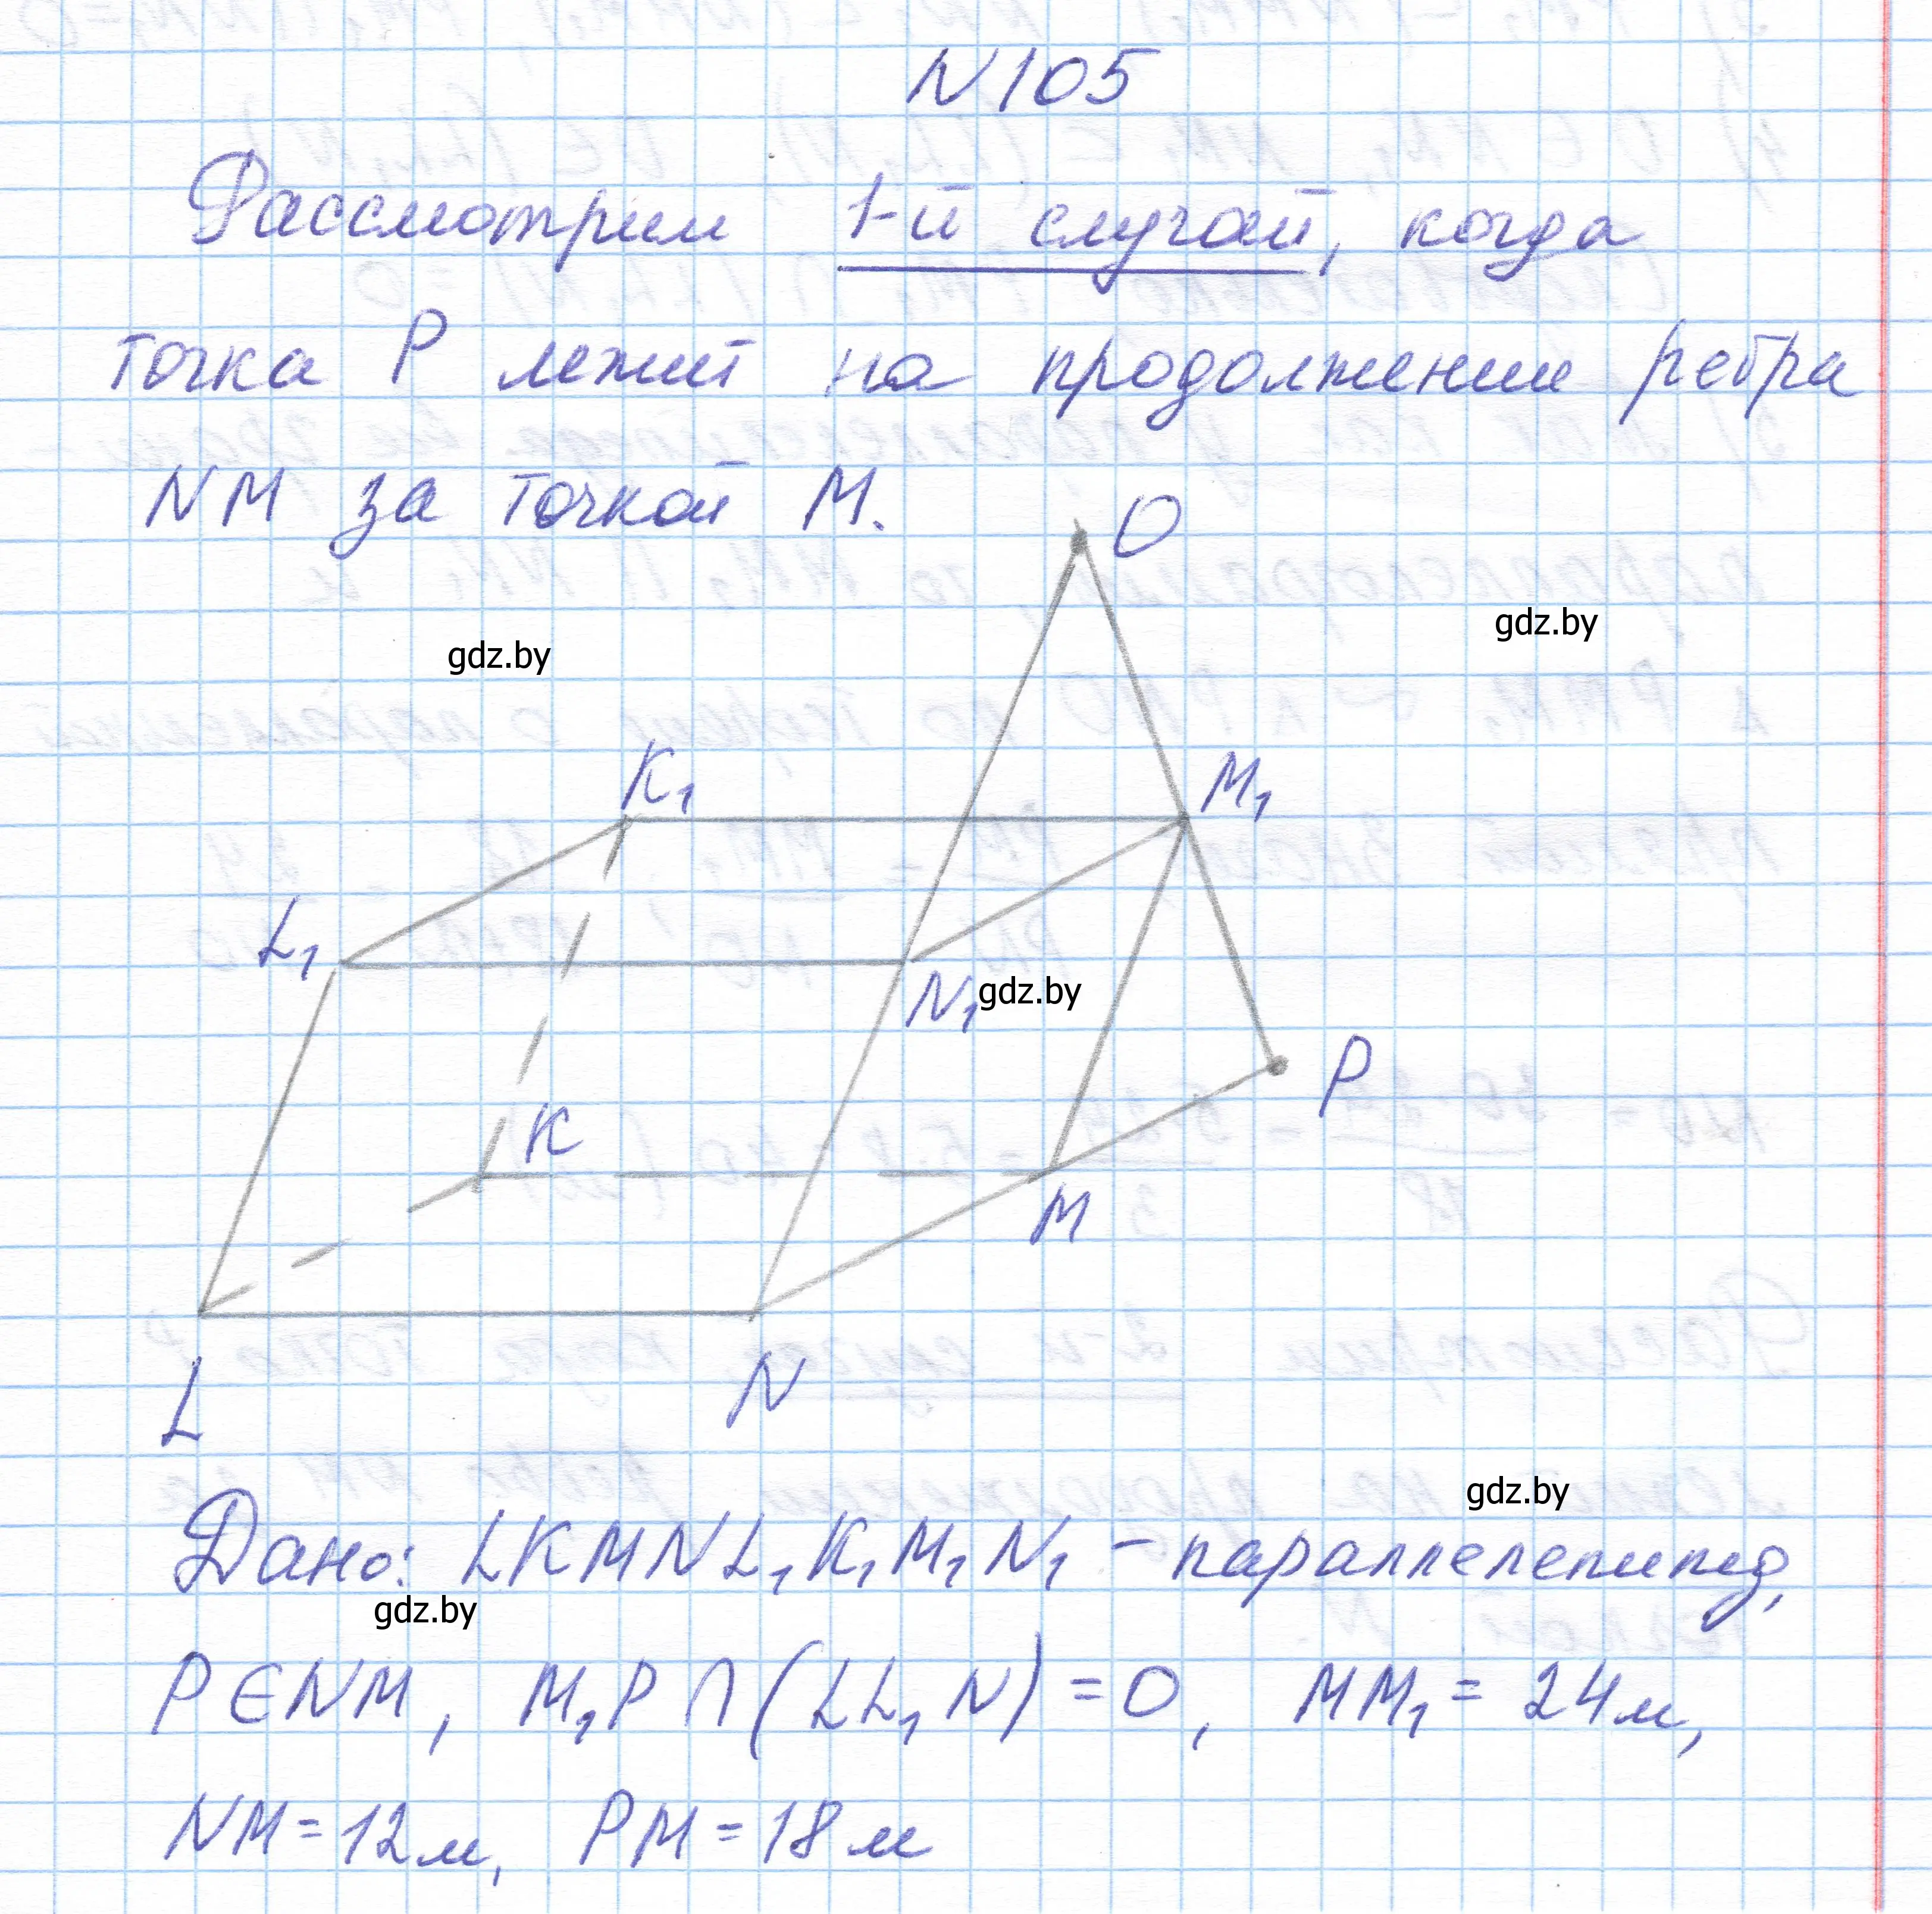 N 105
Рассмотрим 1-й случай, когда
точка P лежит на продолжении ребра
NM за точкой M.
O
gdz.by
gdz.by
K₁
M₁
L₁
N₁
gdz.by
P
K
M
L
N
gdz.by
Дано: LKMNL₁K₁M₁N₁ – параллелепипед,
gdz.by
P∈NM, M₁P∩(LL₁N)=O, MM₁=24м,
NM=12м, PM=18м